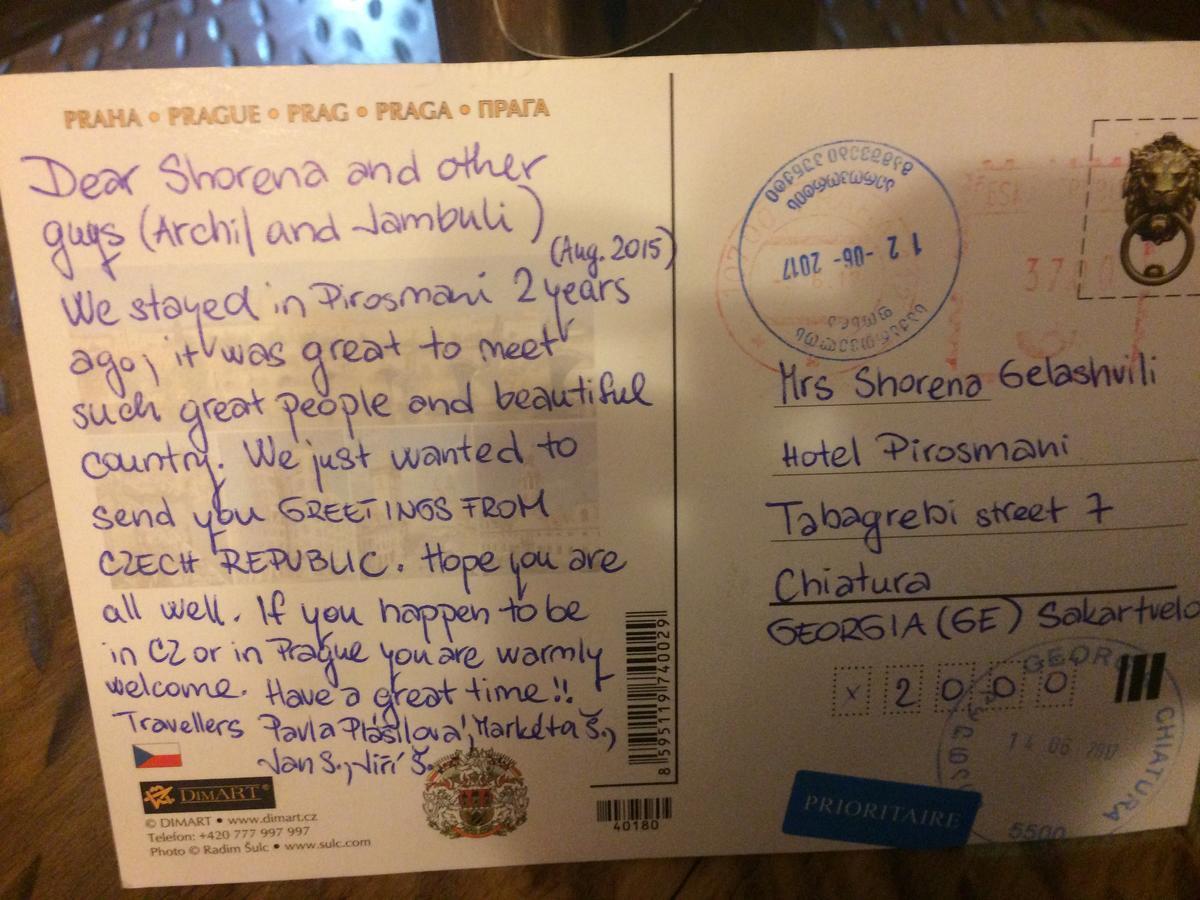 PRAHA • PRAGUE • PRAG • PRAGA • ПРАГА
Dear Shorena and other
guys (Archil and Jambuli)
(Aug. 2015)
We stayed in Pirosmani 2 years
ago; it was great to meet
such great people and beautiful
country. We just wanted to
send you GREETINGS FROM
CZECH REPUBLIC. Hope you are
all well. If you happen to be
in CZ or in Prague you are warmly
welcome. Have a great time!!
Travellers Pavla Plášilová, Markéta Š.,
Jan S., Jiří Š.
DIMART
© DIMART • www.dimart.cz
Telefon: +420 777 997 997
Photo © Radim Šulc • www.sulc.com
8595119740029
40180
12-06-2017
Mrs Shorena Gelashvili
Hotel Pirosmani
Tabagrebi street 7
Chiatura
GEORGIA (GE) Sakartvelo
x 2 0 0 0
14 06 2017
CHIATURA
5500
PRIORITAIRE